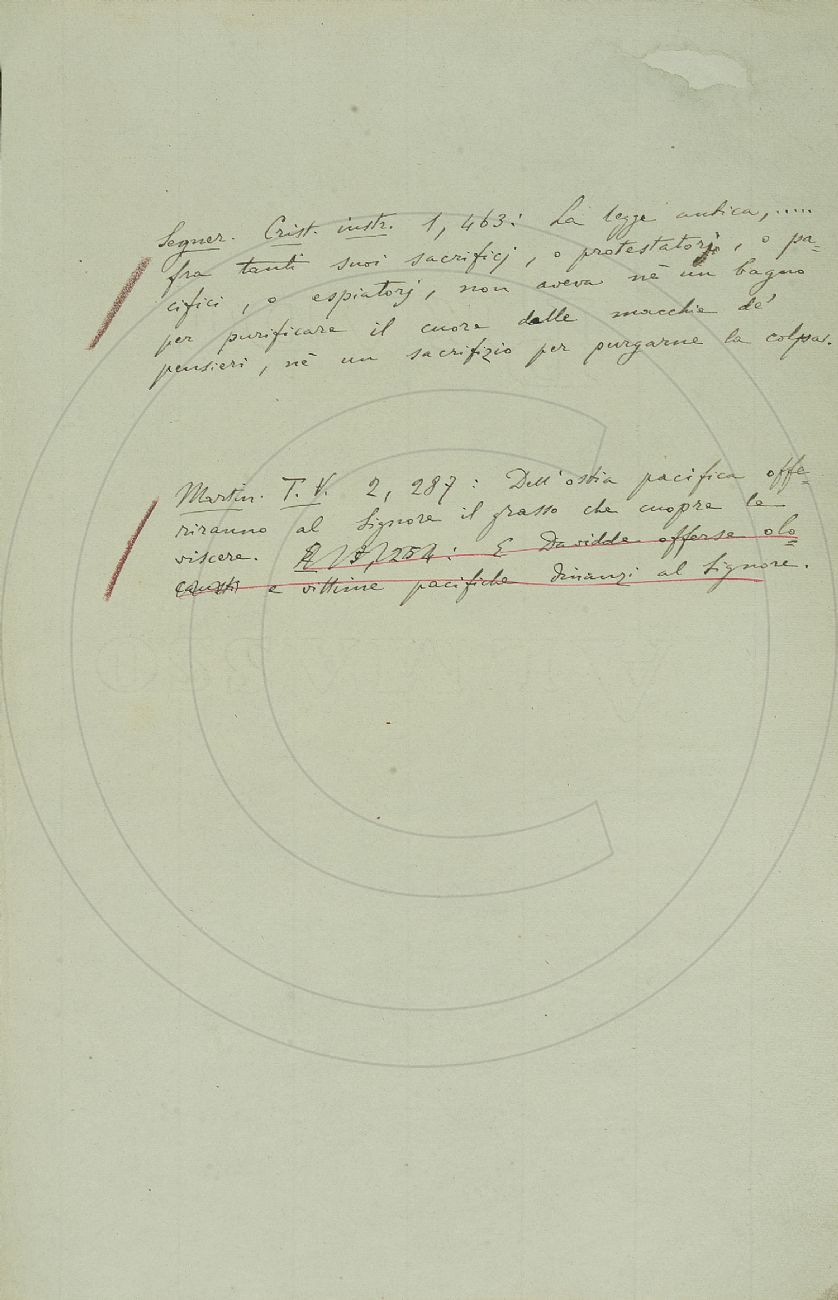 Segner. Crist. instr. 1, 463: La legge antica, .....
fra tanti suoi sacrificj, o protestatorj, o pa=
cifici, o espiatorj, non aveva nè un bagno
per purificare il cuore dalle macchie de'
pensieri, nè un sacrifizio per purgarne la colpa.
Martin. T. V. 2, 287: Dell'ostia pacifica offe=
riranno al Signore il grasso che cuopre le
viscere. 254: E Davidde offerse olo=
causti e vittime pacifiche dinanzi al Signore.